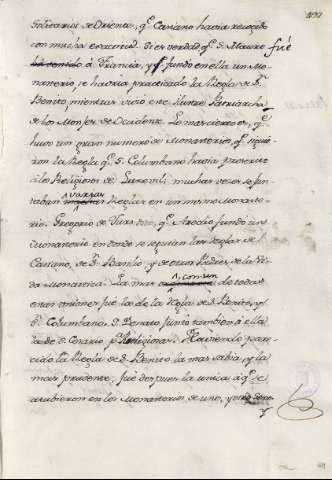 Solitarios de Oriente, qe. Casiano havia recogido
con mucha exactitud. Si es verdad qe. S. Mauro fué
à Francia, y qe. fundó en ella un Mo-
nasterio, se havria practicado la Regla de Sn.
Benito, mientras vivió este Ilustre Patriarcha
de los Monjes de Occidente. Lo mas cierto es, qe.
huvo un gran numero de Monasterios, qe. sigui-
eron la Regla qe. S. Columbano havia prescrito
à los Religiosos de Luxevil: muchas veces se jun-
taban varias Reglas en un mismo Monaste-
rio. Gregorio de Turs dice, qe. Aredio fundó un
Monasterio en donde se seguian las Reglas de
Casiano, de Sn. Basilio, y de otros Padres de la Vi-
da Monastica. La mas comun de todas
estas uniones fué la de la Regla de S. Benito, y
Sn. Columbano. S. Donato juntó tambien à ella
la de S. Cesario pa. Religiosas. Haviendo pare-
cido la Regla de S. Benito la mas sabia, y la
mas prudente, fué despues la unica à qe. se
reduxeron en los Monasterios de uno, y otro sexo